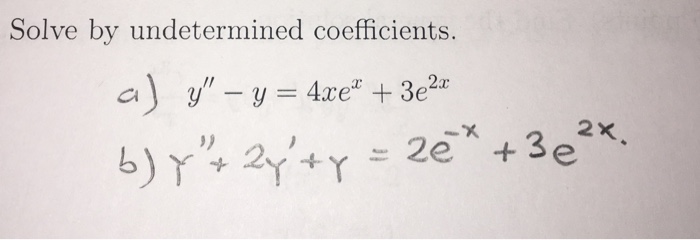 Solve by undetermined coefficients.
a) y″ − y = 4xeˣ + 3e²ˣ
b) y″ + 2y′ + y = 2e⁻ˣ + 3e²ˣ.